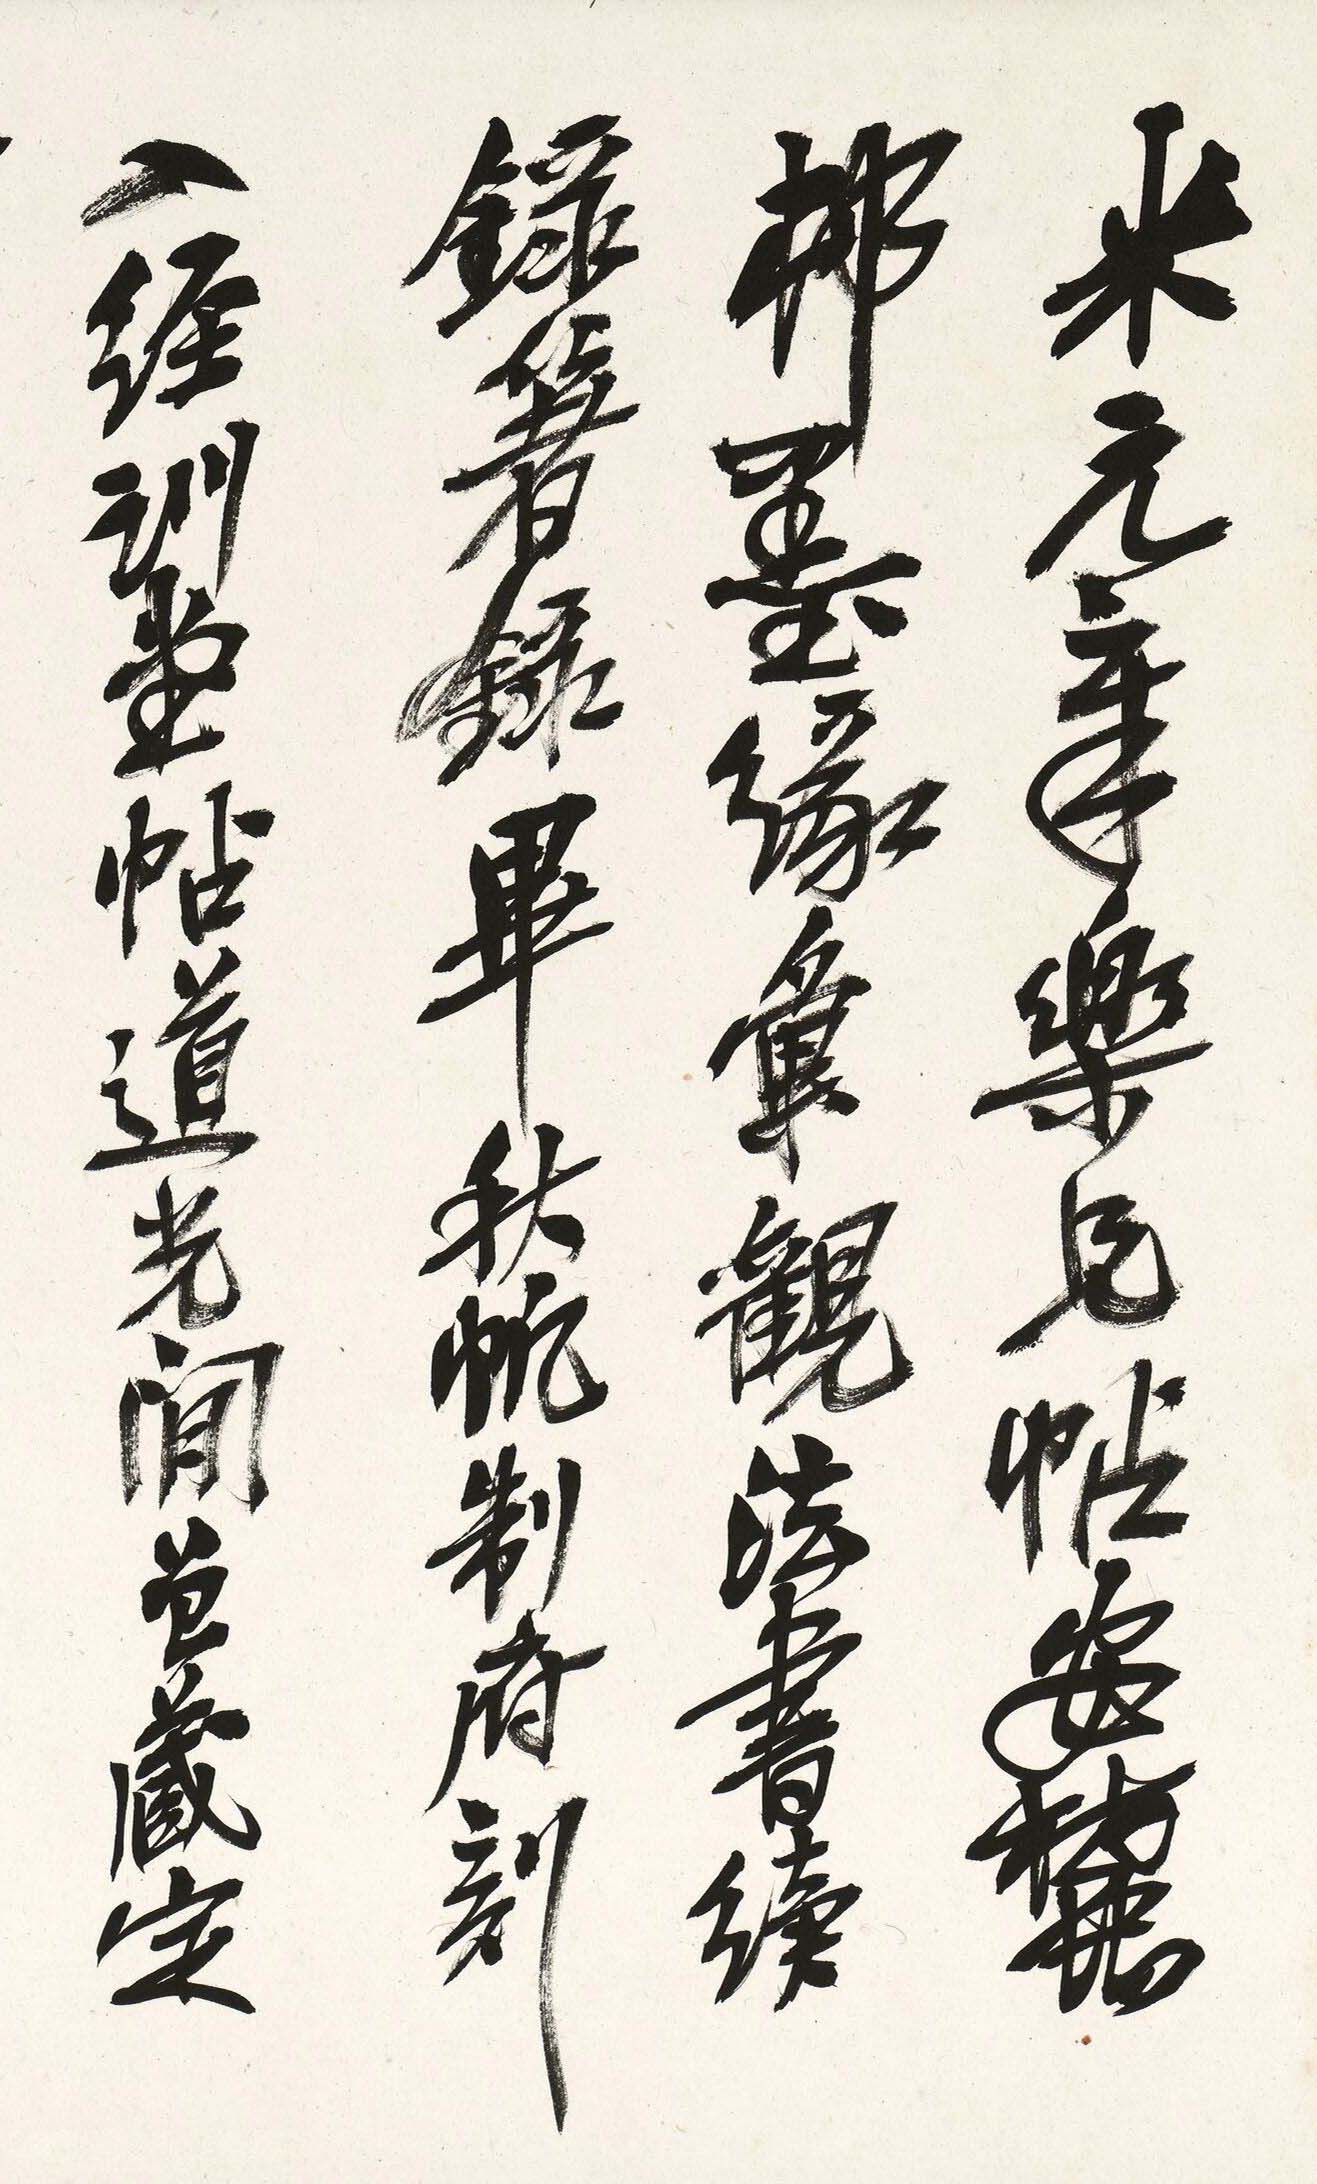 米元章樂兄帖安麓
邨墨緣彙觀法書續
錄著錄畢秋帆制府刻
入經訓堂帖道光間曾藏定